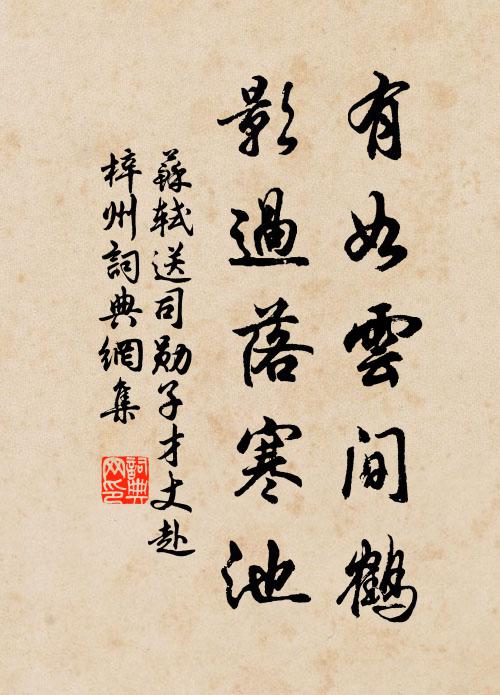 有如雲間鶴
影過落寒池
蘇軾送司勛子才丈赴
梓州詞典網集
詞典網印